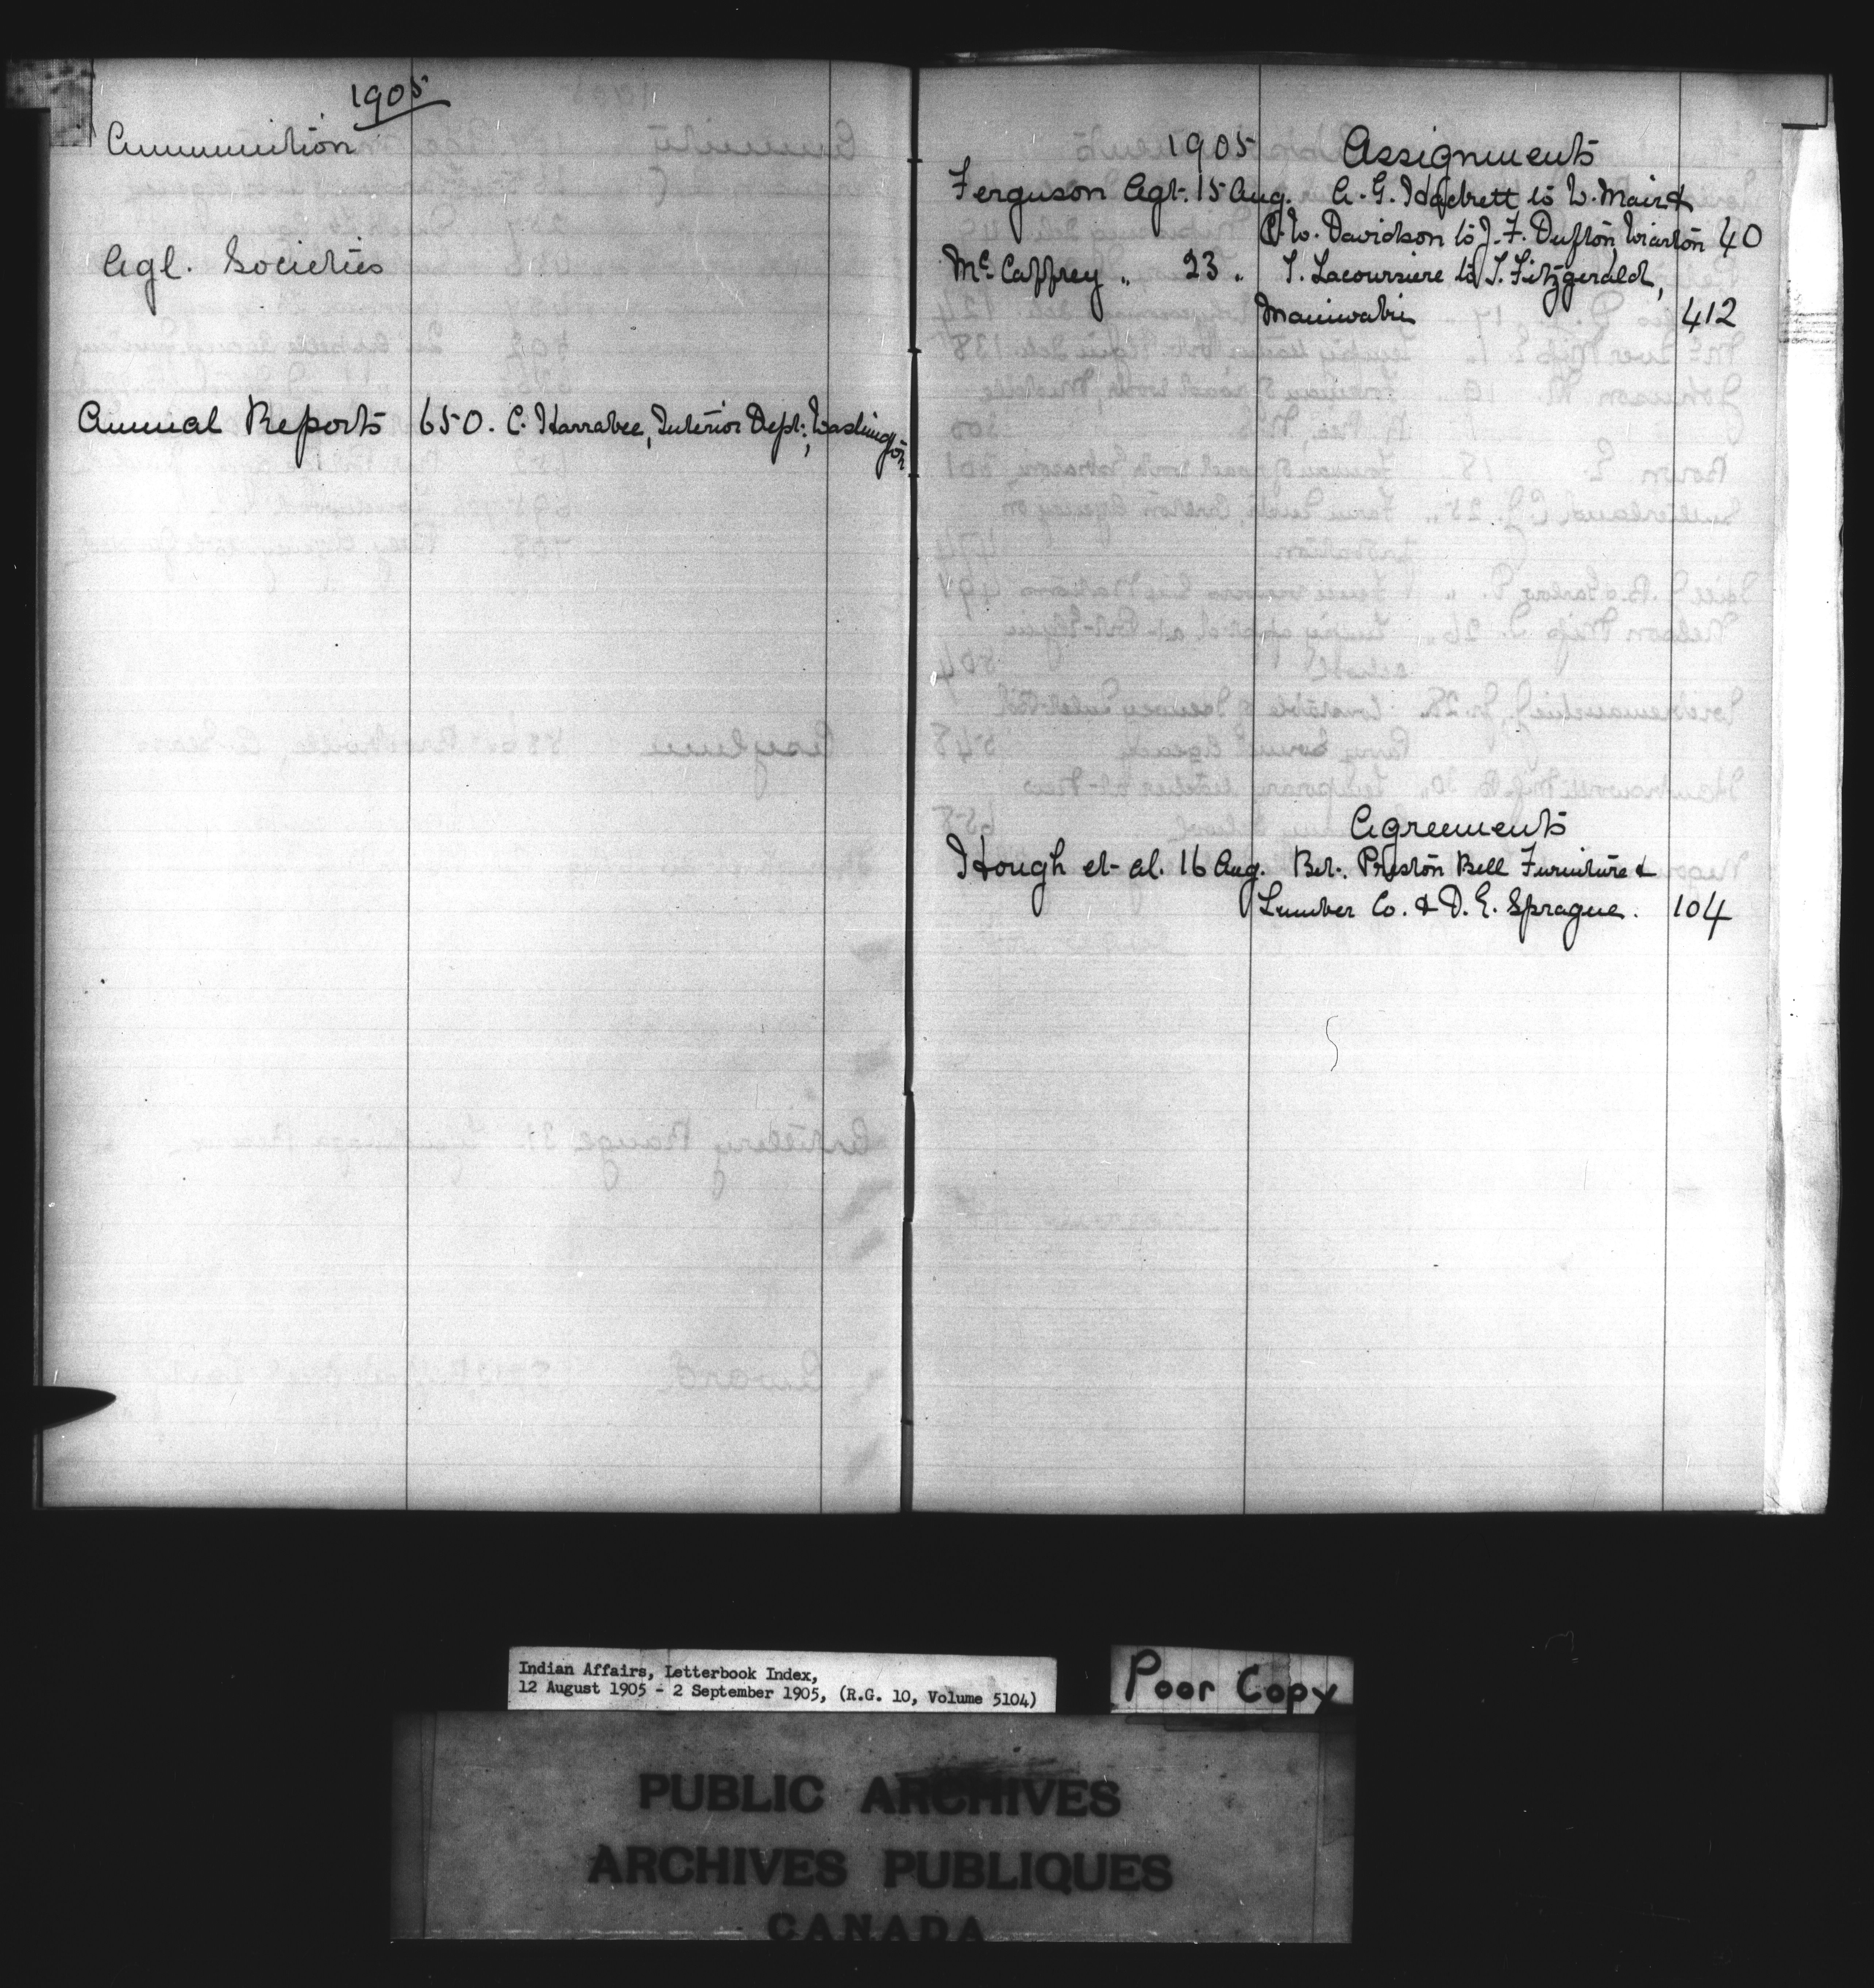 1905
Ammunition
Agl. Societies
Annual Reports 650. C. Harrabee, Interior Dept., Washington
1905 Assignments
Ferguson Agt. 15 Aug. A. G. to W. Mair &
W. Davidson to J. F. Dufton, Wiarton 40
McCaffrey " 23 " Lacoursiere to Fitzgerald,
Maniwaki 412
Agreements
Hough et al. 16 Aug. Bet. Preston Bell Furniture &
Lumber Co. & D. E. Sprague. 104
Indian Affairs, Letterbook Index,
12 August 1905 - 2 September 1905, (R.G. 10, Volume 5104)
Poor Copy
PUBLIC ARCHIVES
ARCHIVES PUBLIQUES
CANADA